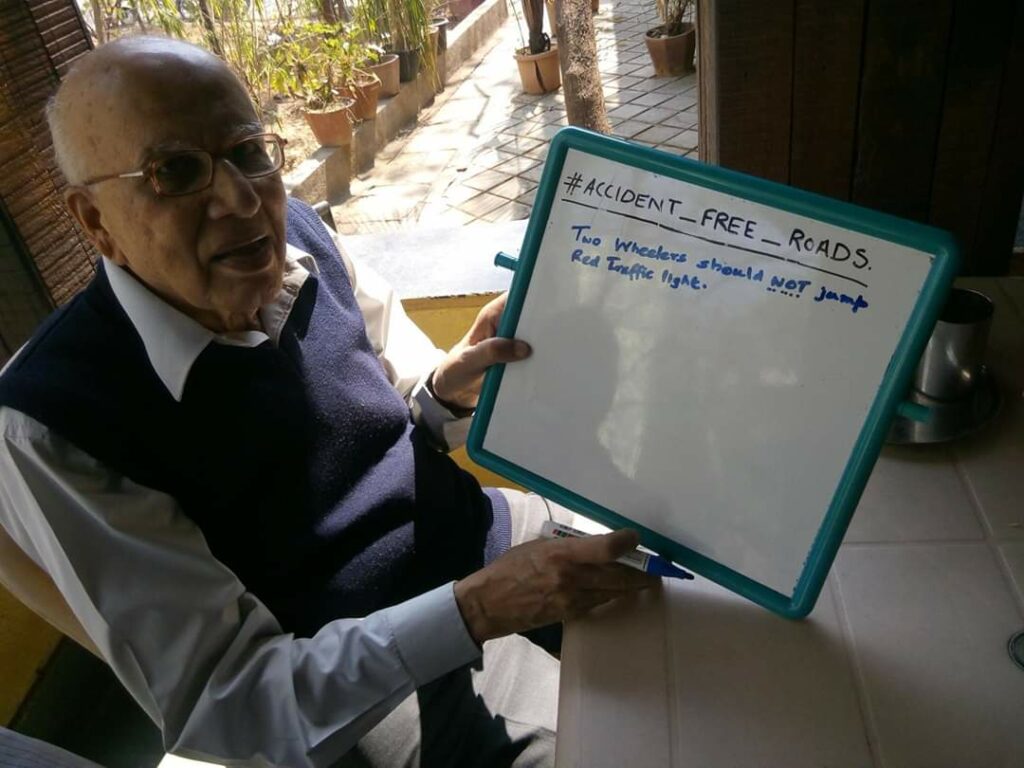 #ACCIDENT_FREE_ROADS.
Two Wheelers should NOT jump
Red Traffic light.